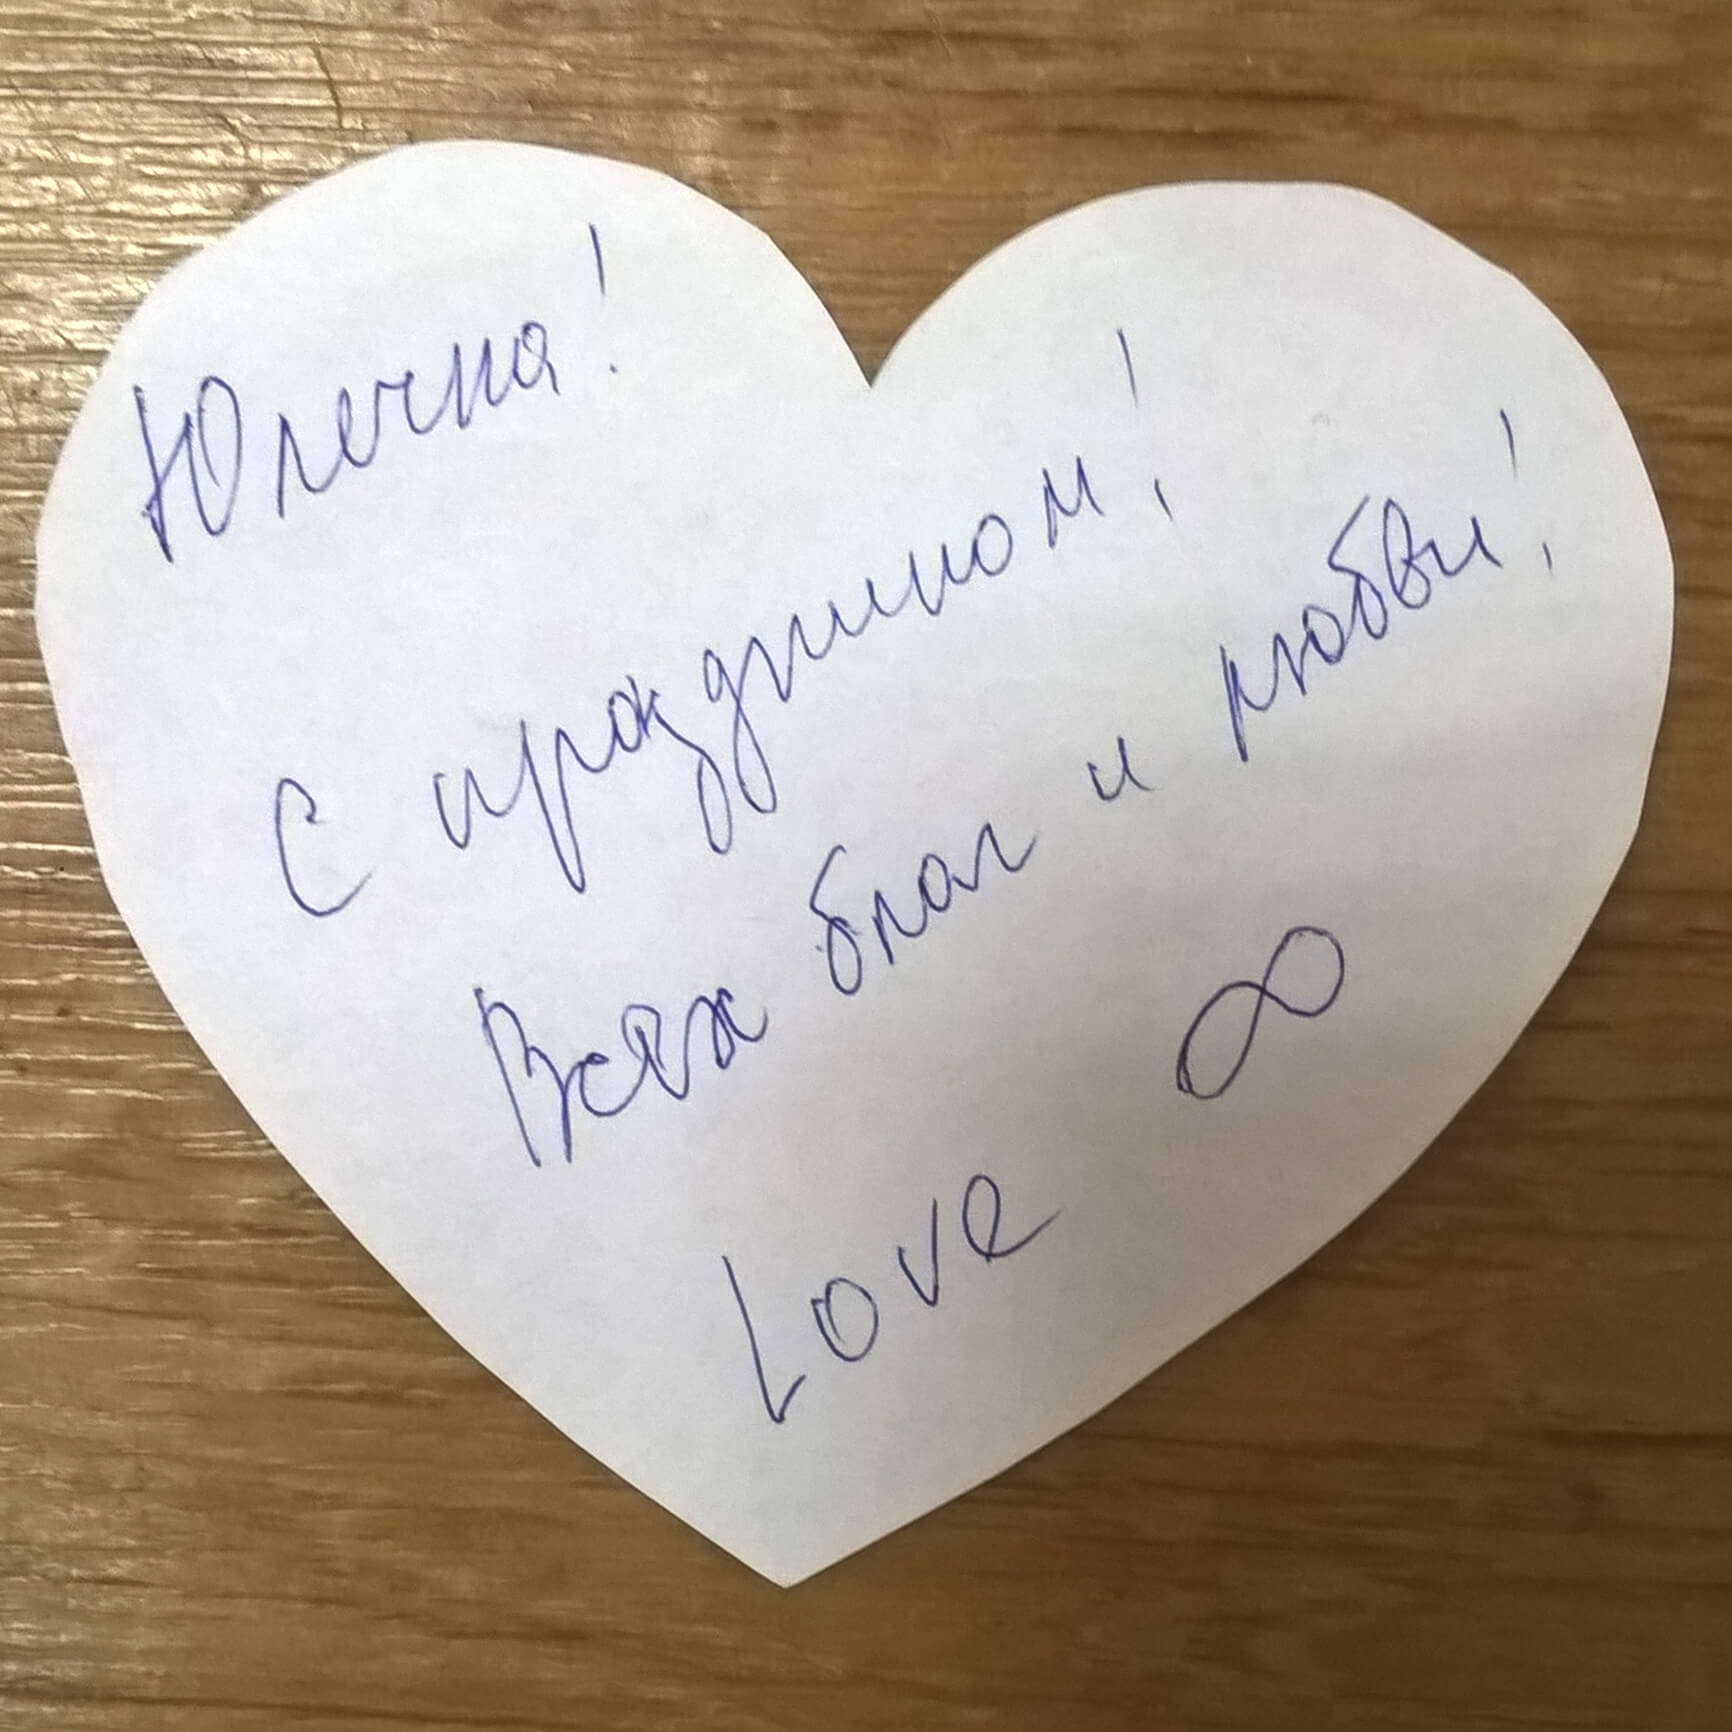 Юлечка!
С праздником!
Всех благ и любви!
Love ∞